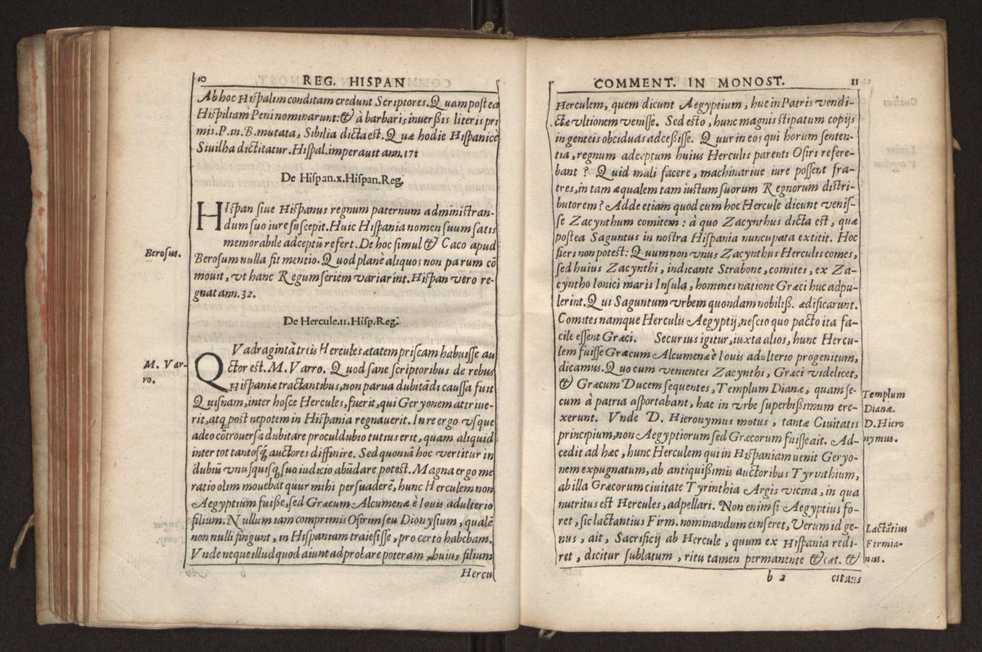 10 REG. HISPAN
Ab hoc Hispalim conditam credunt Scriptores. Quam postea
Hispiliam Peni nominarunt: & à barbaris inuersis literis pri
mis. P. in. B. mutata, Sibilia dicta est. Quæ hodie Hispanicè
Siuilha dictitatur. Hispal. imperauit ann. 17
De Hispan. x. Hispan. Reg.
HIspan siue Hispanus regnum paternum administran-
dum suo iure suscepit. Huic Hispania nomen suum satis
memorabile adceptū refert. De hoc simul & Caco apud
Berosus.
Berosum nulla fit mentio. Quod planè aliquos non parum cō
mouit, vt hanc Regum seriem variarint. Hispan vero re-
gnat ann. 32.
De Hercule. 11. Hisp. Reg.
QVadraginta tris Hercules ætatem priscam habuisse au
M. Var-
ro.
ctor est. M. Varro. Quod sane scriptoribus de rebus
Hispaniæ tractantibus, non parua dubitādi caussa fuit
Quisnam, inter hosce Hercules, fuerit, qui Geryonem attriue-
rit, atq; post nepotem in Hispania regnauerit. In re ergo vsque
adeo cōtrouersa dubitare proculdubio tutius erit, quam aliquid
inter tot tantosq; auctores diffinire. Sed quoniā hoc vertitur in
dubiū vnusquisq; suo iudicio abūdare potest. Magna ergo me
ratio olim mouebat quur mihi persuaderē, hunc Herculem non
Aegyptium fuisse, sed Græcum Alcumena è Iouis adulterio
filium. Nullum iam comprimis Osirim seu Dionysium, qualē
non nulli fingunt, in Hispaniam traiesisse, pro certo habebam.
Vnde neque illud quod aiunt adprobare poteram, huius, filium
Hercu
COMMENT. IN MONOST. 11
Herculem, quem dicunt Aegyptium, huc in Patris vendi-
ctæ vltionem venisse. Sed esto, hunc magnis stipatum copijs
ingenteis obeiduas adcessisse. Quur in eos qui horum senten-
tia, regnum adeptum huius Herculis parenti Osiri refere-
bant? Quid mali facere, machinariue iure possent fra-
tres, in tam æqualem tam iustum suorum Regnorum distri-
butorem? Adde etiam quod cum hoc Hercule dicunt venis-
se Zacynthum comitem: à quo Zacynthus dicta est, quæ
postea Saguntus in nostra Hispania nuncupata extitit. Hoc
fieri non potest: Quum non vnus Zacynthus Herculis comes,
sed huius Zacynthi, indicante Strabone, comites, ex Za-
cyntho Ionici maris Insula, homines natione Græci huc adpu-
lerint. Qui Saguntum vrbem quondam nobiliss. ædificarunt.
Comites namque Herculis Aegyptij, nescio quo pacto ita fa-
cile essent Græci. Securius igitur, iuxta alios, hunc Hercu-
lem fuisse Græcum Alcumenæ è Iouis adulterio progenitum,
dicamus. Quocum venientes Zacynthi, Græci videlicet,
& Græcum Ducem sequentes, Templum Dianæ, quam se-
cum à patria asportabant, hac in vrbe superbissimum ere-
Templum
Dianæ.
xerunt. Vnde D. Hieronymus motus, tantæ Ciuitatis
D. Hiero
nymus.
principium, non Aegyptiorum sed Græcorum fuisse ait. Ad-
cedit ad hæc, hunc Herculem qui in Hispaniam venit Geryo-
nem expugnatum, ab antiquissimis auctoribus Tyrinthium,
ab illa Græcorum ciuitate Tyrinthia Argis vicina, in qua
nutritus est Hercules, adpellari. Non enim si Aegyptius fo-
ret, sic lactantius Firm. nominandum censeret, Verum id ge-
Lactātius
Firmia-
nus.
nus, ait, Sacrificij ab Hercule, quum ex Hispania redi-
ret, dicitur sublatum, ritu tamen permanente & cæt. &
b 2 citans